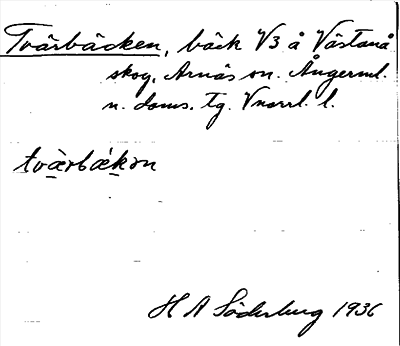 Tvärbäcken, bäck V3 å Västanå
skog, Arnäs sn. Ångerml.
n. doms. tg. Vnorrl. l.
tvä̀rbä́kən
H A Söderberg 1936